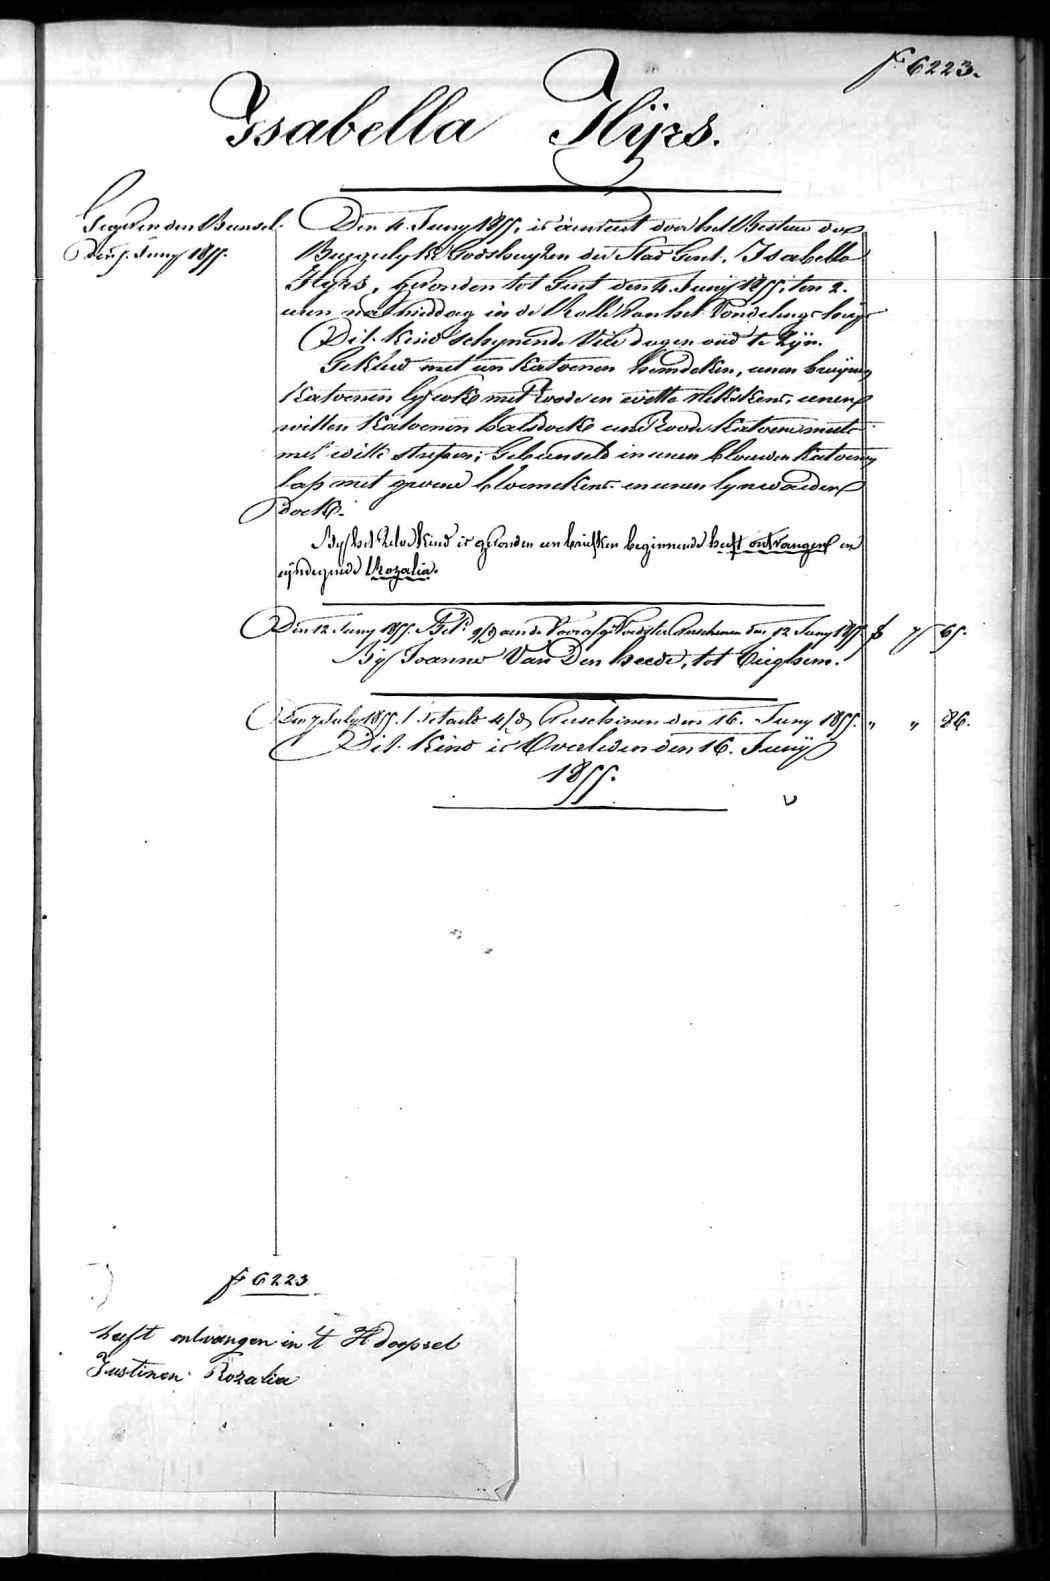 f° 6223.
Isabella Ilijrs.
Gegeven den Bunsel.
Den 5. Juny 1855.
Den 4. Juny 1855, is aenveert door het Bestuer der
Burgerlyke Godshuyzen der Stad Gent, Isabella
Ilyrs, gevonden tot Gent den 4. Junij 1855, ten 2.
uren na middag in de Rolle van het Vondelingshuys
Dit Kind schynende Vele dagen oud te zijn.
Gekleed met een Katoenen hemdeken, eenen bruynen
Katoenen lyfrok met Roode en witte Vlekskens, eenen
witten Katoenen halsdoek eene Roode Katoene muts
met witte streepen; Gebunseld in eenen blouwen Katoenen
lap met groene bloemekens en eenen lynwaeden
doek.
By het Zelve Kind is gevonden een briefken beginnende heeft ontvangen en
eyndegende Rozalia.
Den 12 Juny 1855. Bet. aen de Verschenen den 12 Juny 1855. f 7 65.
Bij Joanna Van Den heede, tot
Den 7 July 1855. betaeld Verschenen den 16. Juny 1855. " " 86.
Dit Kind is Overleden den 16. Junij
1855.
f° 6223
heeft ontvangen in 't H doopsel
Justinen Rozalia